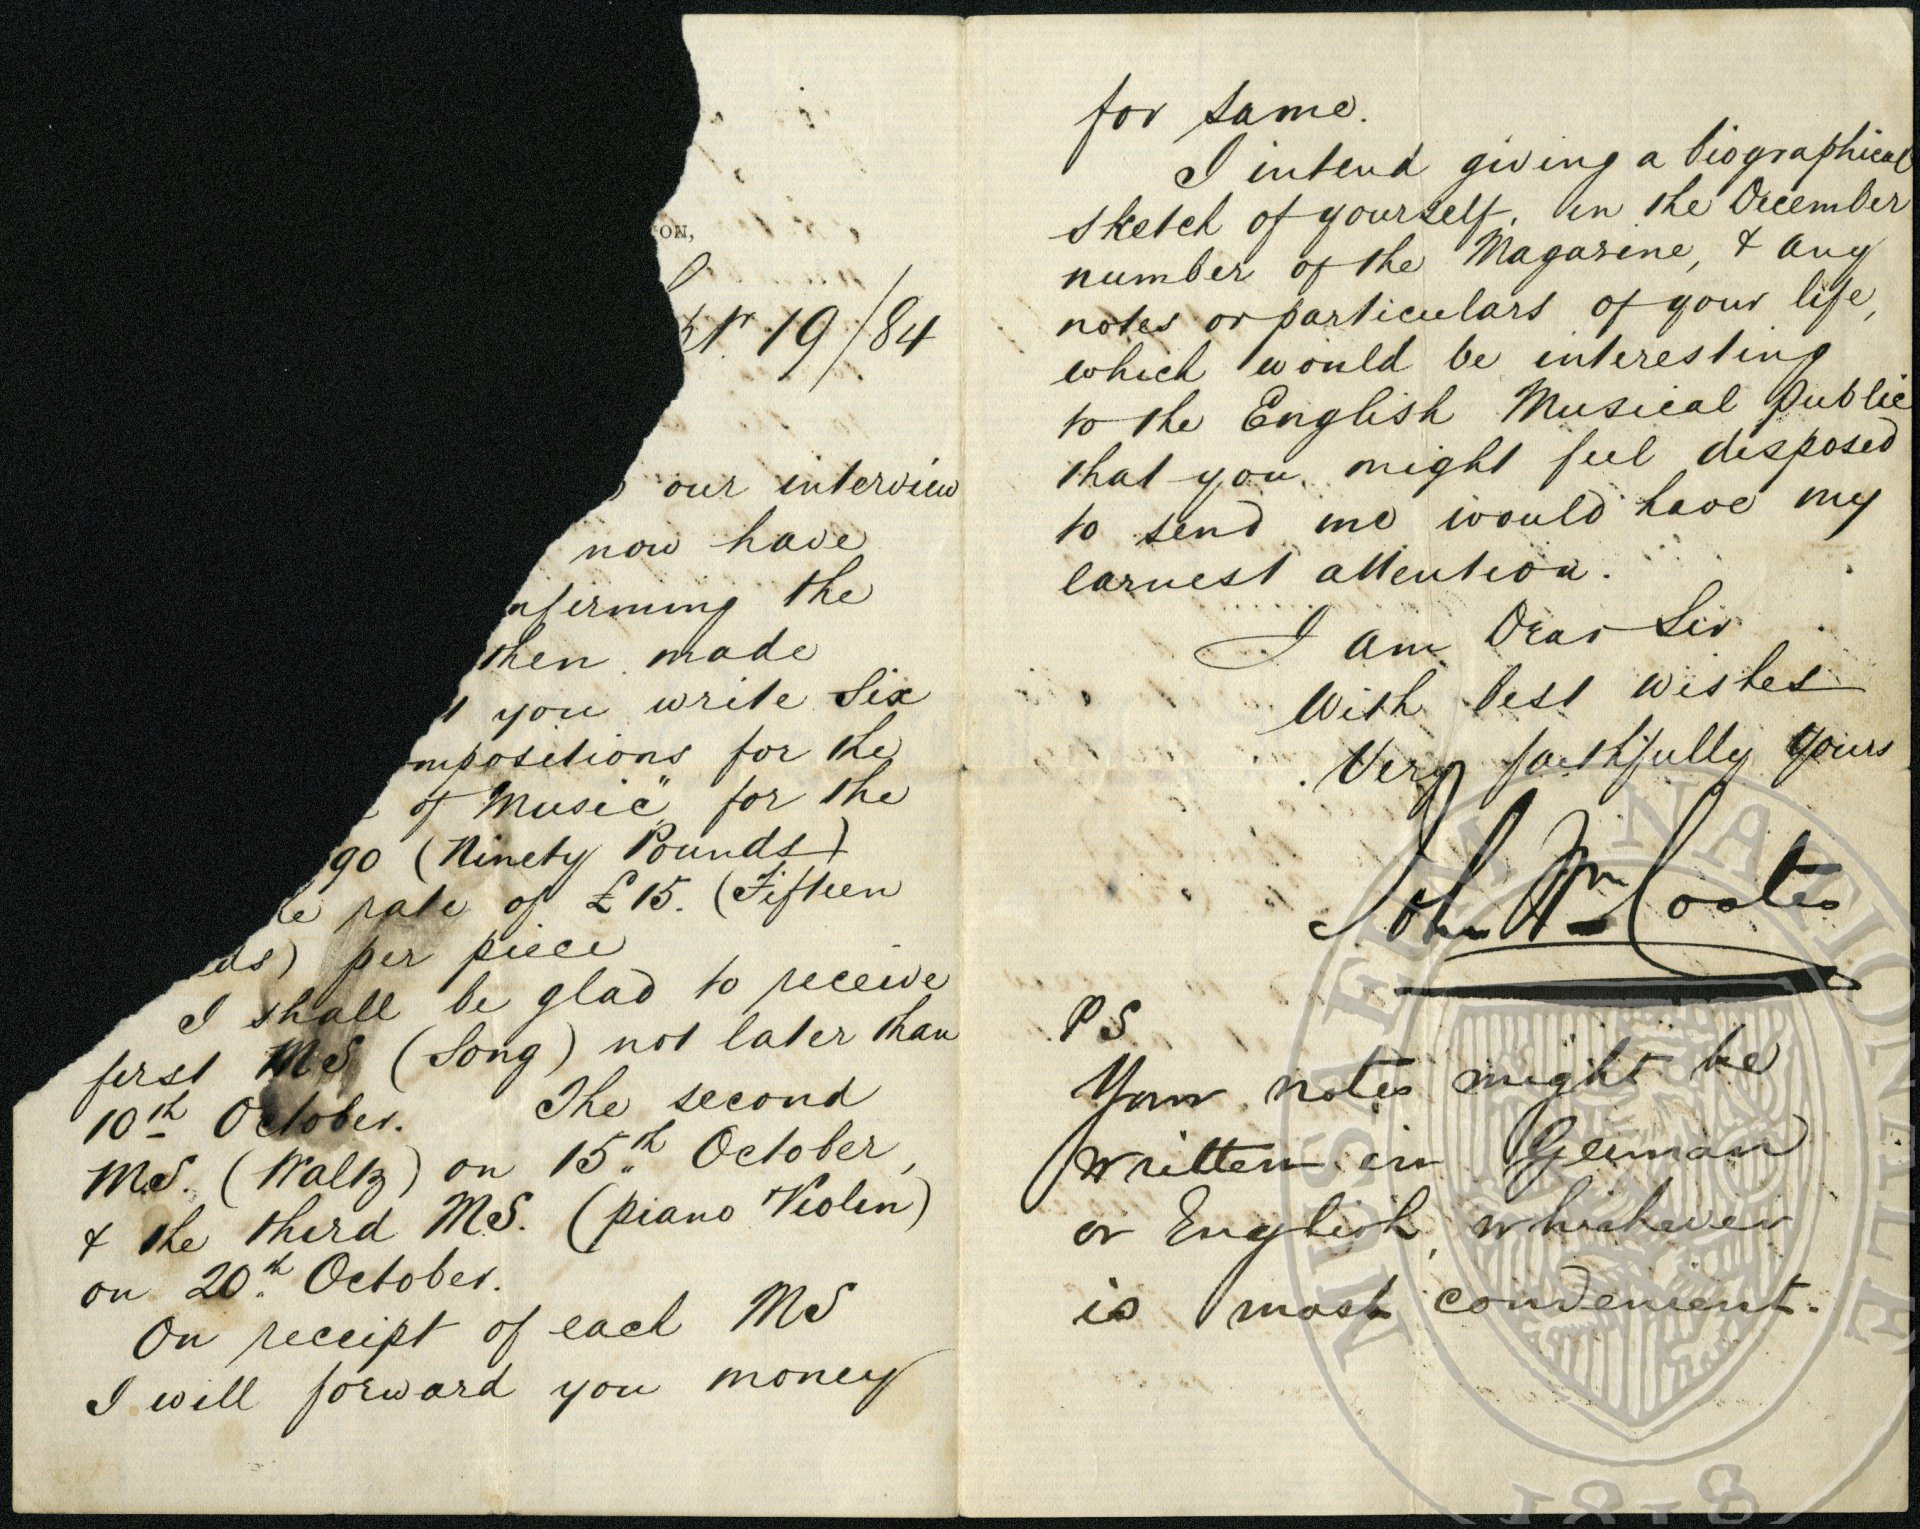 ON,
pt.r 19/84
our interview
now have
nfirming the
then made
t you write Six
ompositions for the
of Music", for the
90 (Ninety Pounds)
e rate of £15. (Fifteen
ds) per piece
I shall be glad to receive
first MS (Song) not later than
10th October. The second
MS. (Waltz) on 15th October,
& the third MS. (piano Violin)
on 20th October.
On receipt of each MS
I will forward you money
for same.
I intend giving a biographical
sketch of yourself, in the December
number of the Magazine, & any
notes or particulars of your life,
which would be interesting
to the English Musical public
that you might feel disposed
to send me would have my
earnest attention.
I am Dear Sir
With best wishes
Very faithfully Yours
John Wm Coates
PS
Your notes might be
written in German
or English, whichever
is most convenient.
MUSAEUM NATIONALE
1818